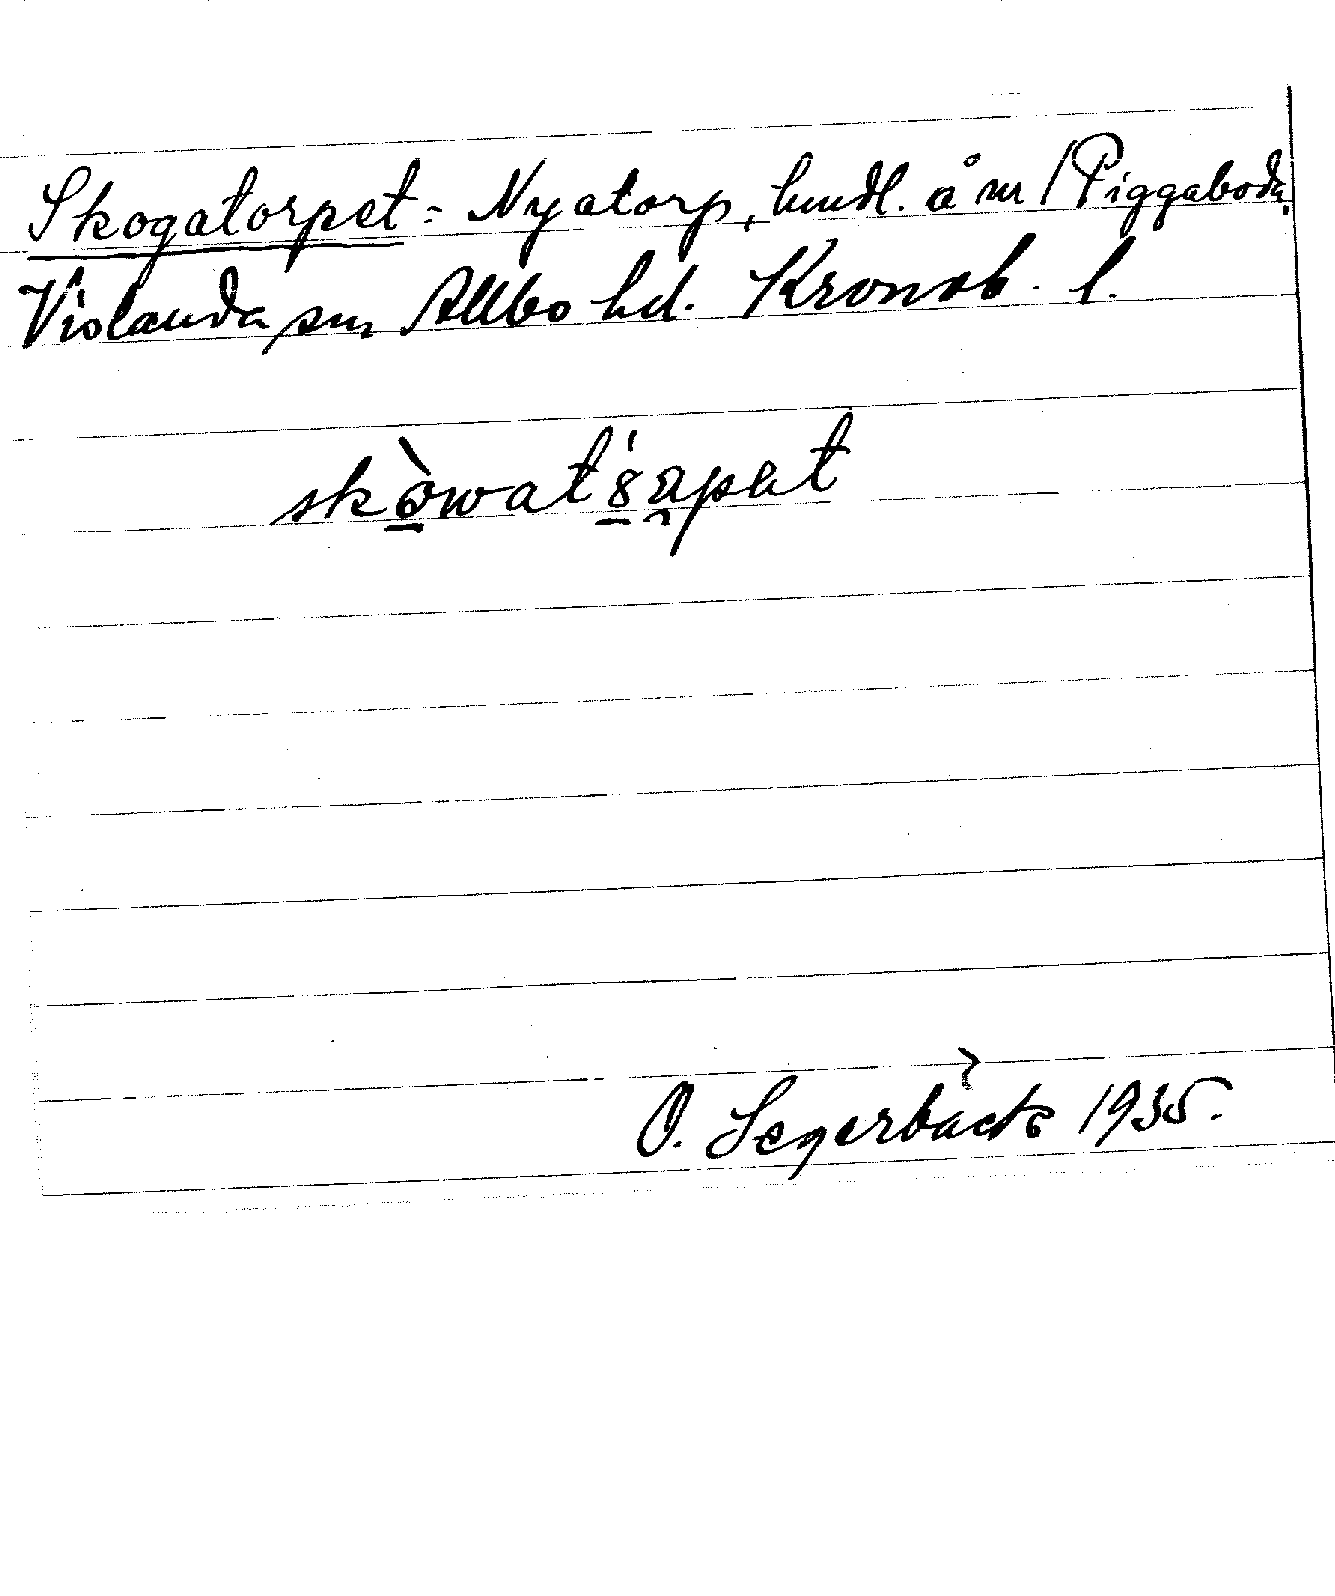 Skogatorpet = Nyatorp, hmdl. å nr 1 Piggaboda,
Vislanda sn, Allbo hd. Kronob. l.
skòwat'sapat
O. Segerbäck 1935.